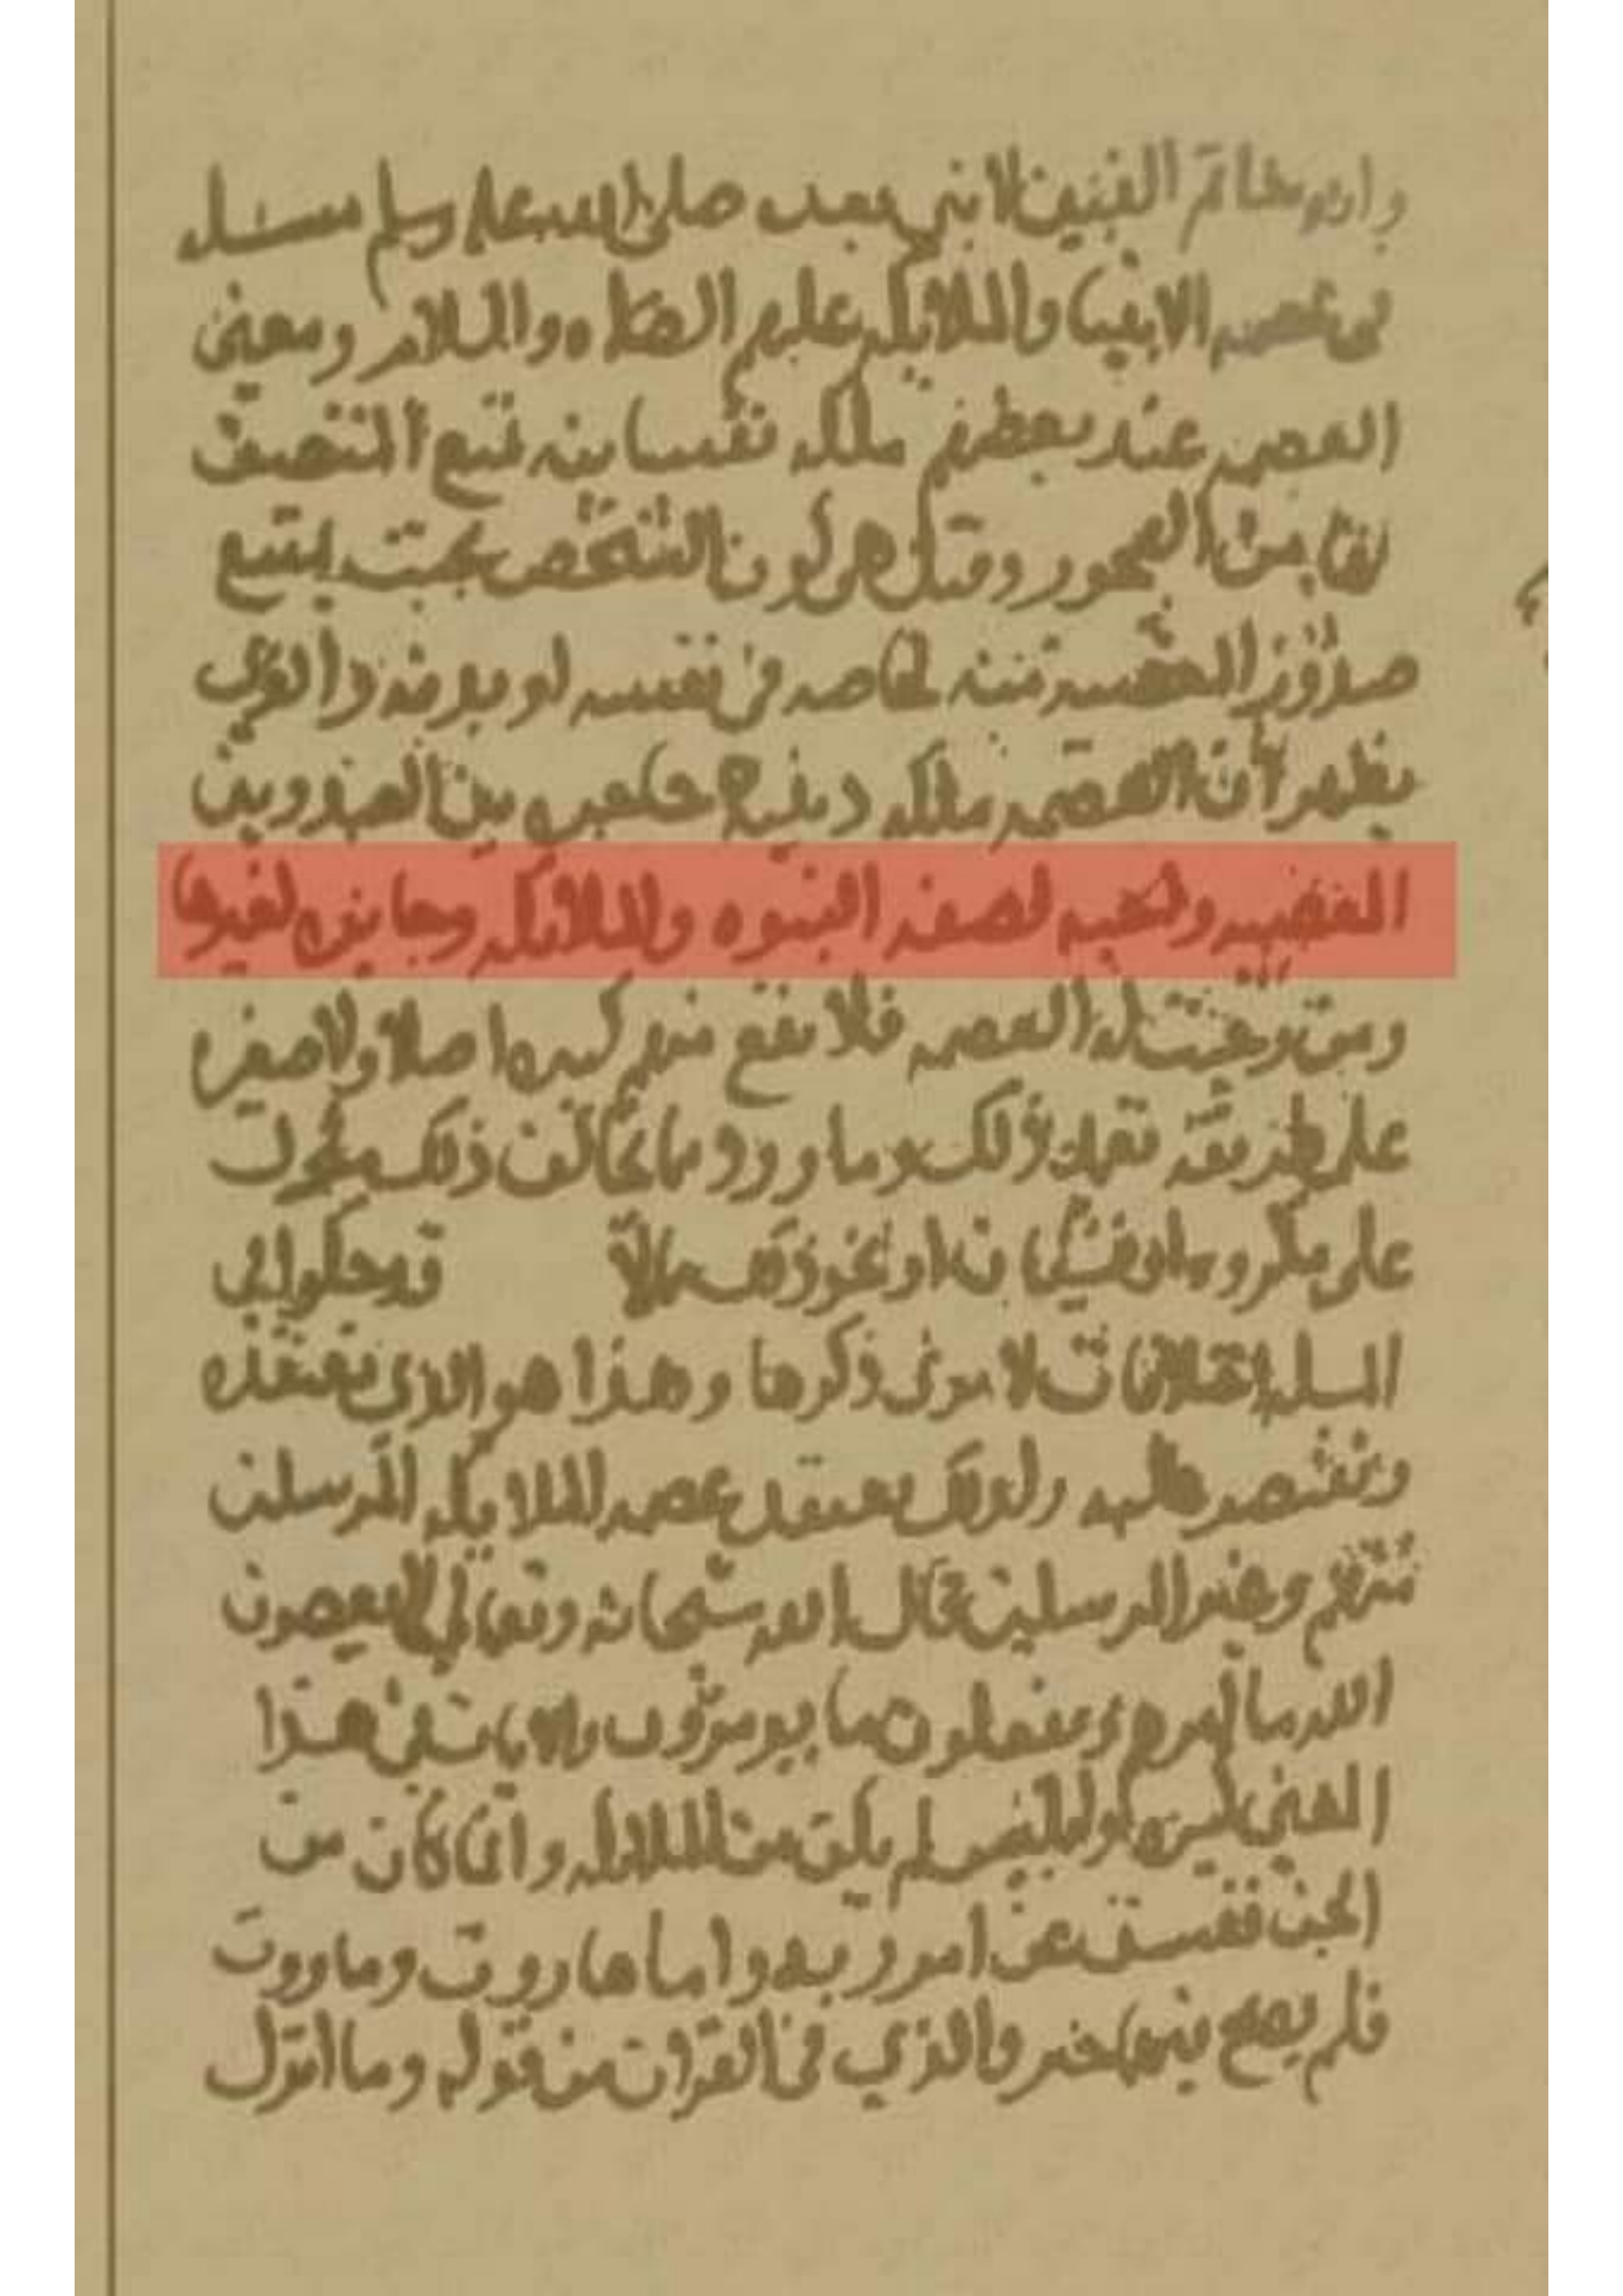 وانه خاتم النبين لا نبي بعده صلى الله عليه وسلم مسئله
في عصمه الانبيا والملائكه عليهم الصلاه والسلام ومعنى
العصمه عند بعضهم ملكه نفسانيه تمنع المتصف
بها من الفجور وقيل هي كون الشخص بحيث يمتنع
صدور المعصيه منه لخاصه في نفسه او بدنه والذي
يظهر ان العصمه ملكه دينيه حكمها بين الصدوبين
المعصيه واجبه لصفه النبوه والملائكه وجايزه لغيرها
ومن وجبت له العصمه فلا يقع منهم كبيره اصلا ولا صغيره
على طريقه ذلك وما ورد مما يخالف ذلك محمول
على او نحو ذلك قد حكوا في
المسله اختلافات لا نرى ذكرها وهذا هو الذي نعتقده
ونقتصر عليه ولذلك نعتقد عصمه الملايكه المرسلين
منهم وغير المرسلين قال الله سبحانه وتعالى لا يعصون
الله ما امرهم ويفعلون ما يومرون والايات في هذا
المعنى كثيره وابليس لم يكن من الملائكه وانما كان من
الجن ففسق عن امر ربه واما هاروت وماروت
فلم يصح فيهما خبر والذي في القران من قوله وما انزل